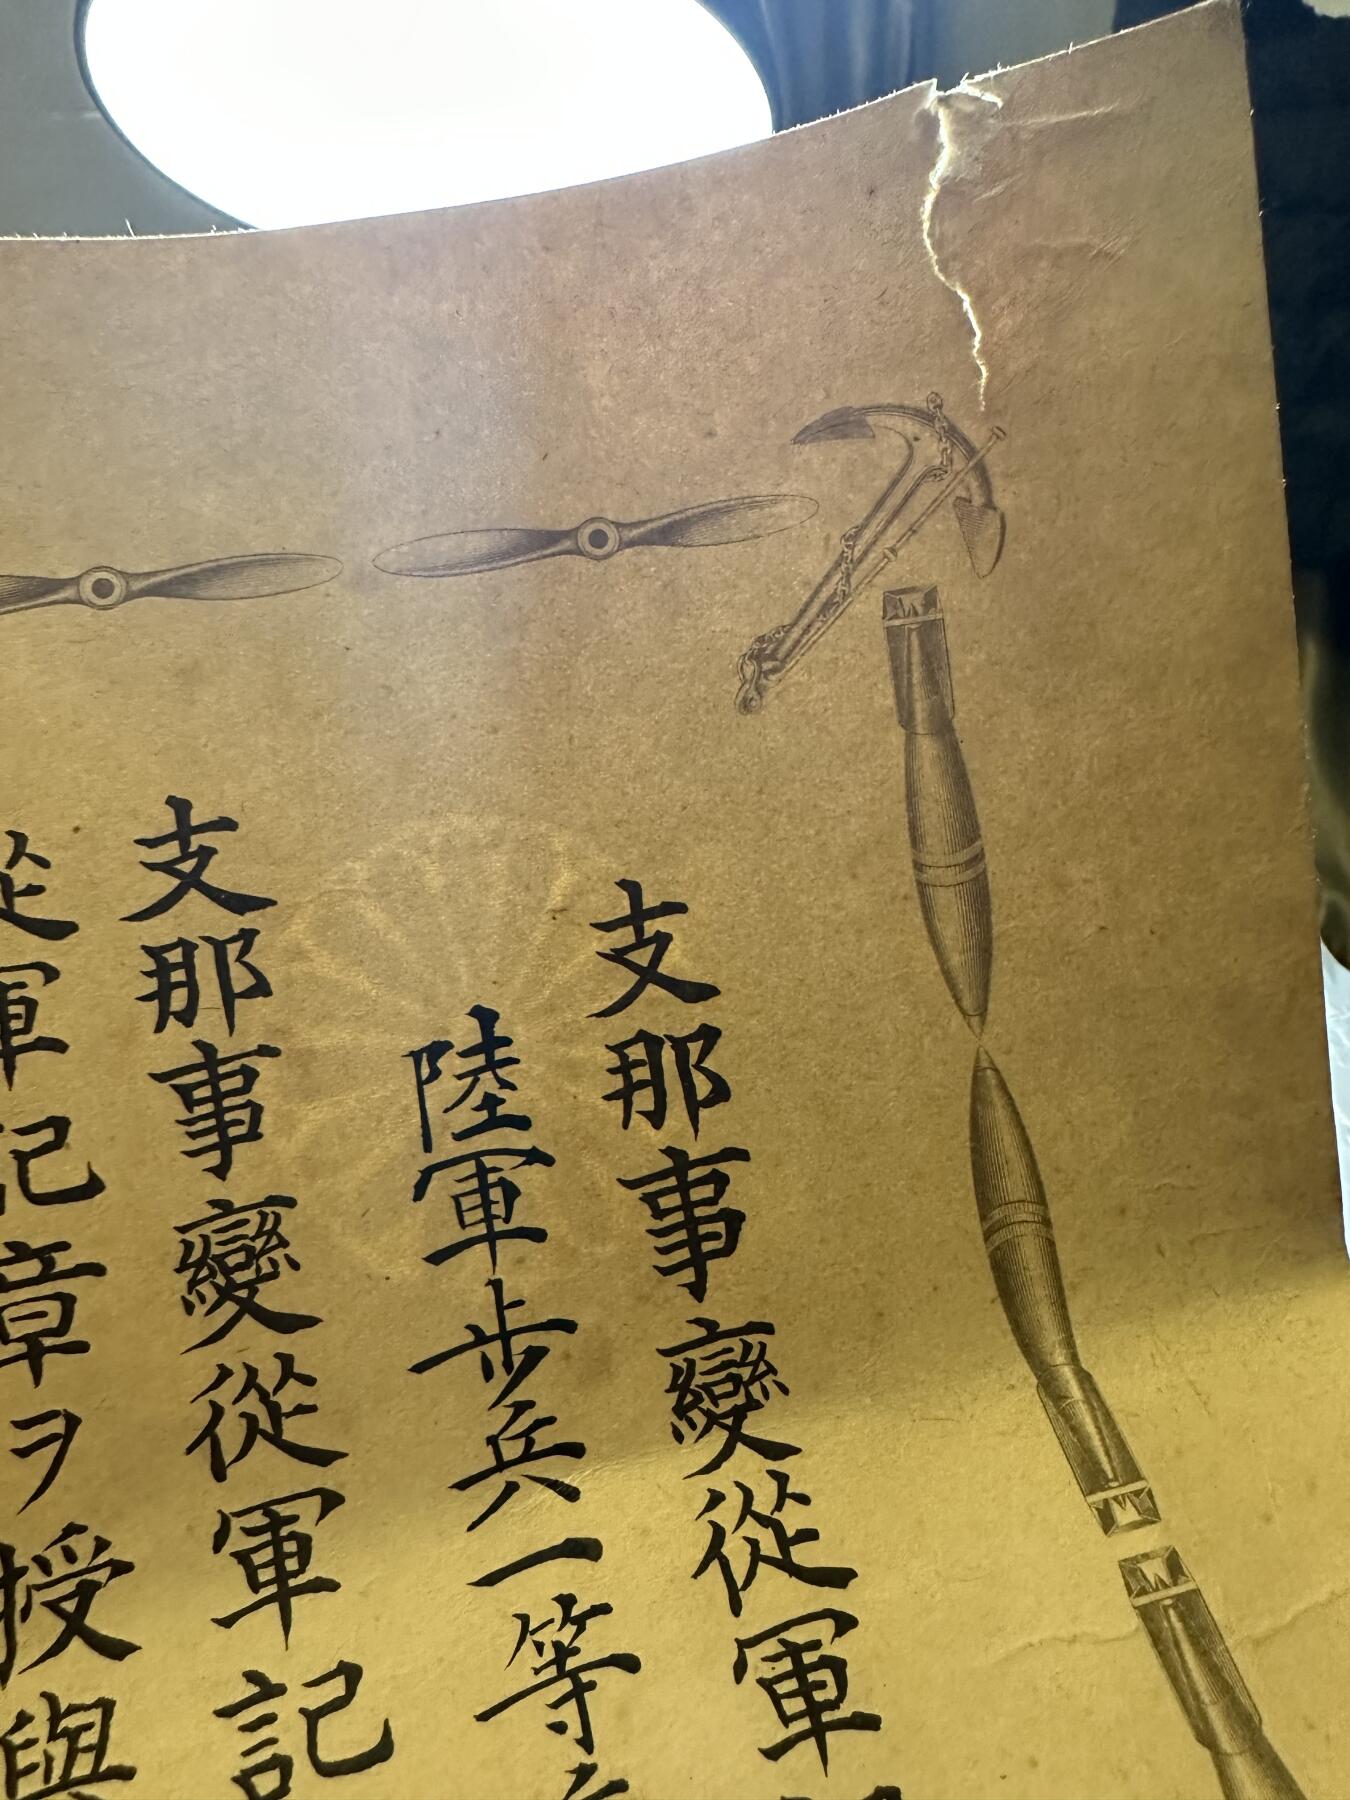 支那事變從軍
陸軍步兵一等
支那事變從軍記
從軍記章ヲ授與